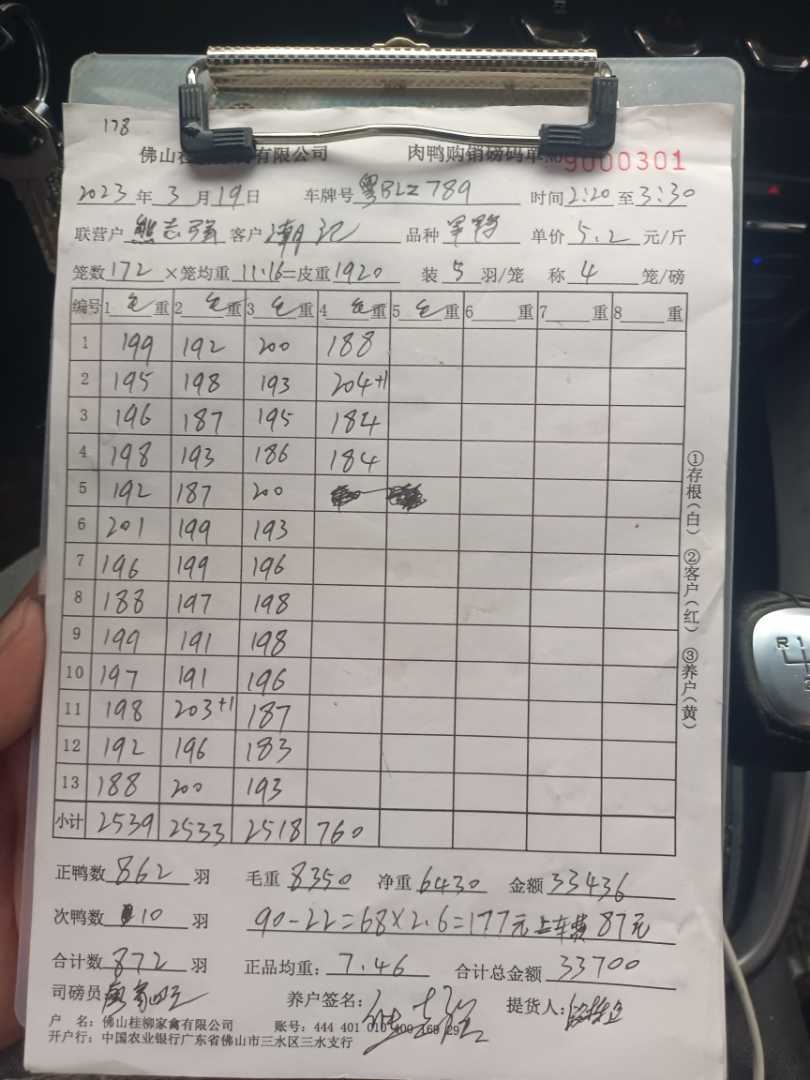 178
佛山桂 有限公司 肉鸭购销磅码单 No 9000301
2023 年 3 月 19 日 车牌号 粤BLZ789 时间 2:20 至 3:30
联营户 熊志强 客户 潮记 品种 单价 5.2 元/斤
笼数 172 ×笼均重 11.16 =皮重 1920 装 5 羽/笼 称 4 笼/磅
编号 1 毛 重 2 毛 重 3 毛 重 4 毛 重 5 毛 重 6 重 7 重 8 重
1 199 192 200 188
2 195 198 193 204+1
3 196 187 195 184
4 198 193 186 184
5 192 187 200
6 201 199 193
7 196 199 196
8 188 197 198
9 199 191 198
10 197 191 196
11 198 203+1 187
12 192 196 183
13 188 200 193
小计 2539 2533 2518 760
①存根(白) ②客户(红) ③养户(黄)
正鸭数 862 羽 毛重 8350 净重 6430 金额 33436
次鸭数 10 羽 90-22=68×2.6=177元 上车费 87元
合计数 872 羽 正品均重: 7.46 合计总金额 33700
司磅员 养户签名: 熊志强 提货人:
户 名: 佛山桂柳家禽有限公司 账号: 444 401 010 400 169 29
开户行: 中国农业银行广东省佛山市三水区三水支行
R 1